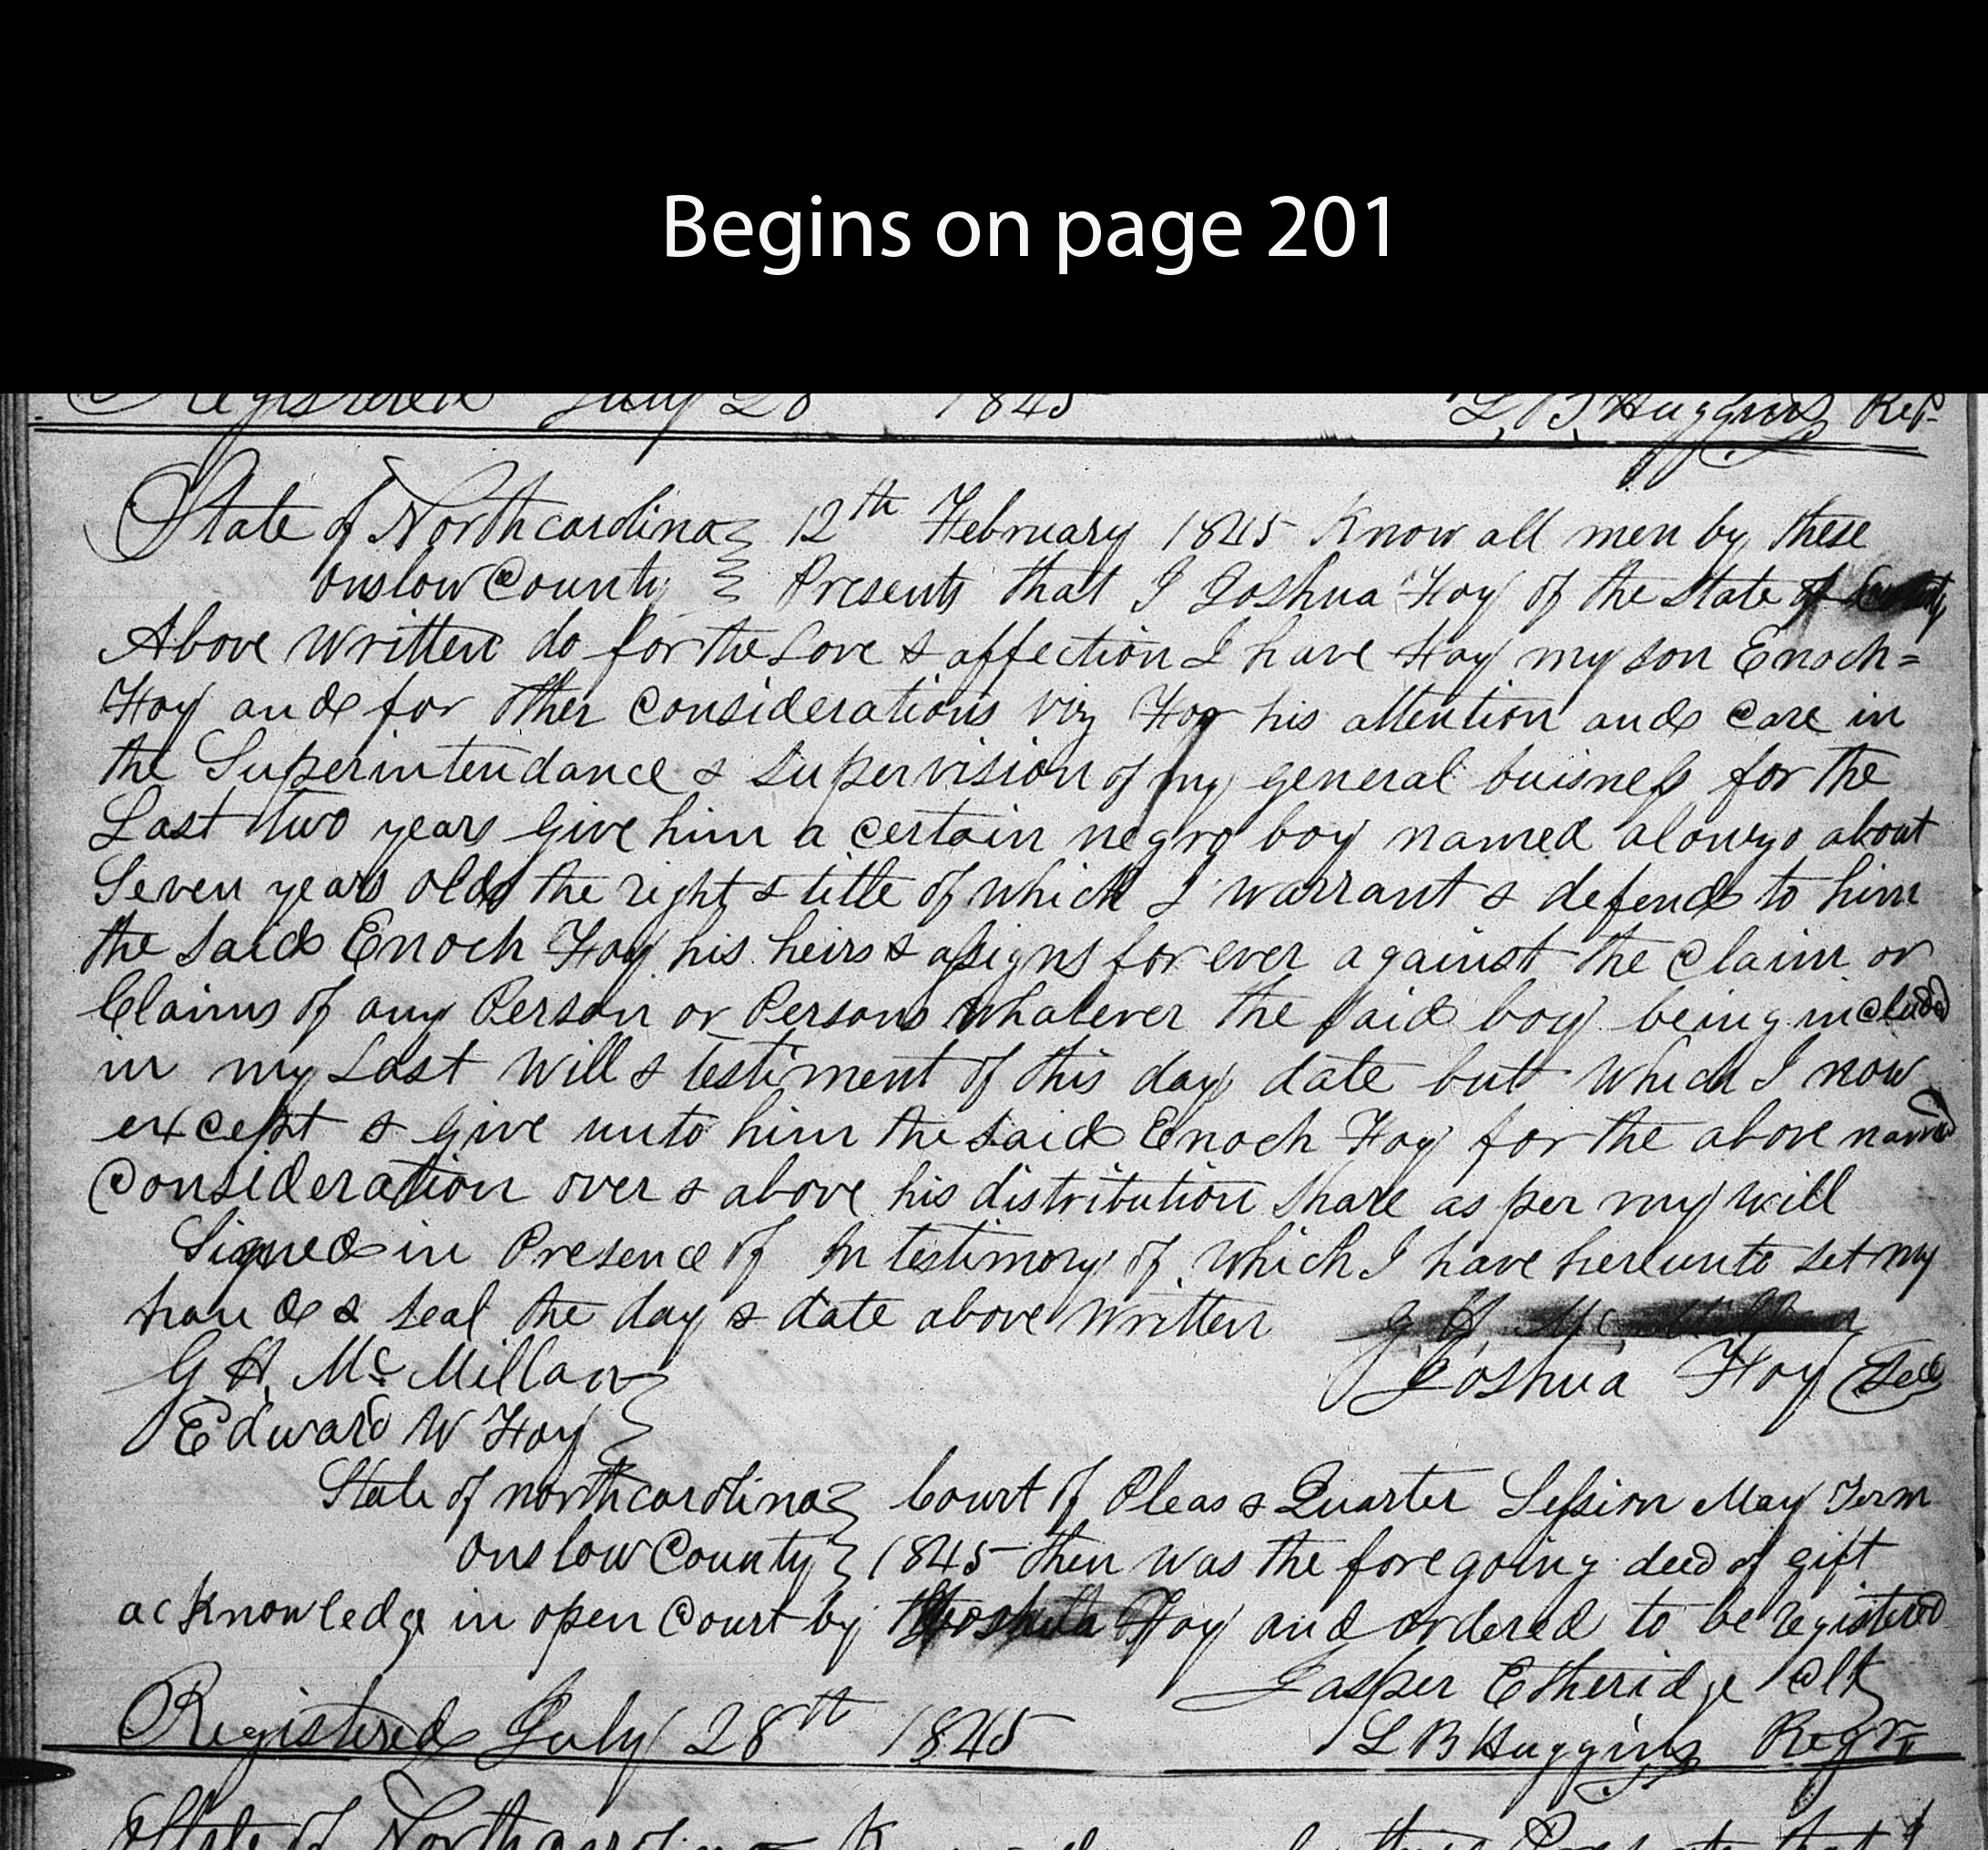 Begins on page 201
Registered July 28 1845 L, B, Huggins Regr
State of Northcarolina 12th February 1845 Know all men by these
Onslow County Presents that I Joshua Foy of the State of County
Above written do for the Love & affection I have Foy my son Enoch=
Foy and for other Considerations viz For his attention and Care in
the Superintendance & Supervision of my general buisness for the
Last two years give him a certain negro boy named alonzo about
Seven years old the right & title of which I warrant & defend to him
the said Enoch Foy his heirs & assigns for ever against the Claim or
Claims of any Person or Persons whatever the said boy being included
in my Last will & testiment of this day date but which I now
except & give unto him the said Enoch Foy for the above named
Consideration over & above his distribution share as per my will
Signed in Presence of In testimony of which I have hereunto set my
hand & seal the day & date above written G H Mc Millan
G H, Mc Millan Joshua Foy Seal
Edward W Foy
State of northcarolina Court of Pleas & Quarter Session May Term
Onslow County 1845 then was the foregoing deed of gift
acknowledge in open Court by Joshua Foy and ordered to be registered
Jasper Etheridge Clk
Registered July 28th 1845 L B Huggins Regr
State of Northcarolina Know all men by these Presents that I